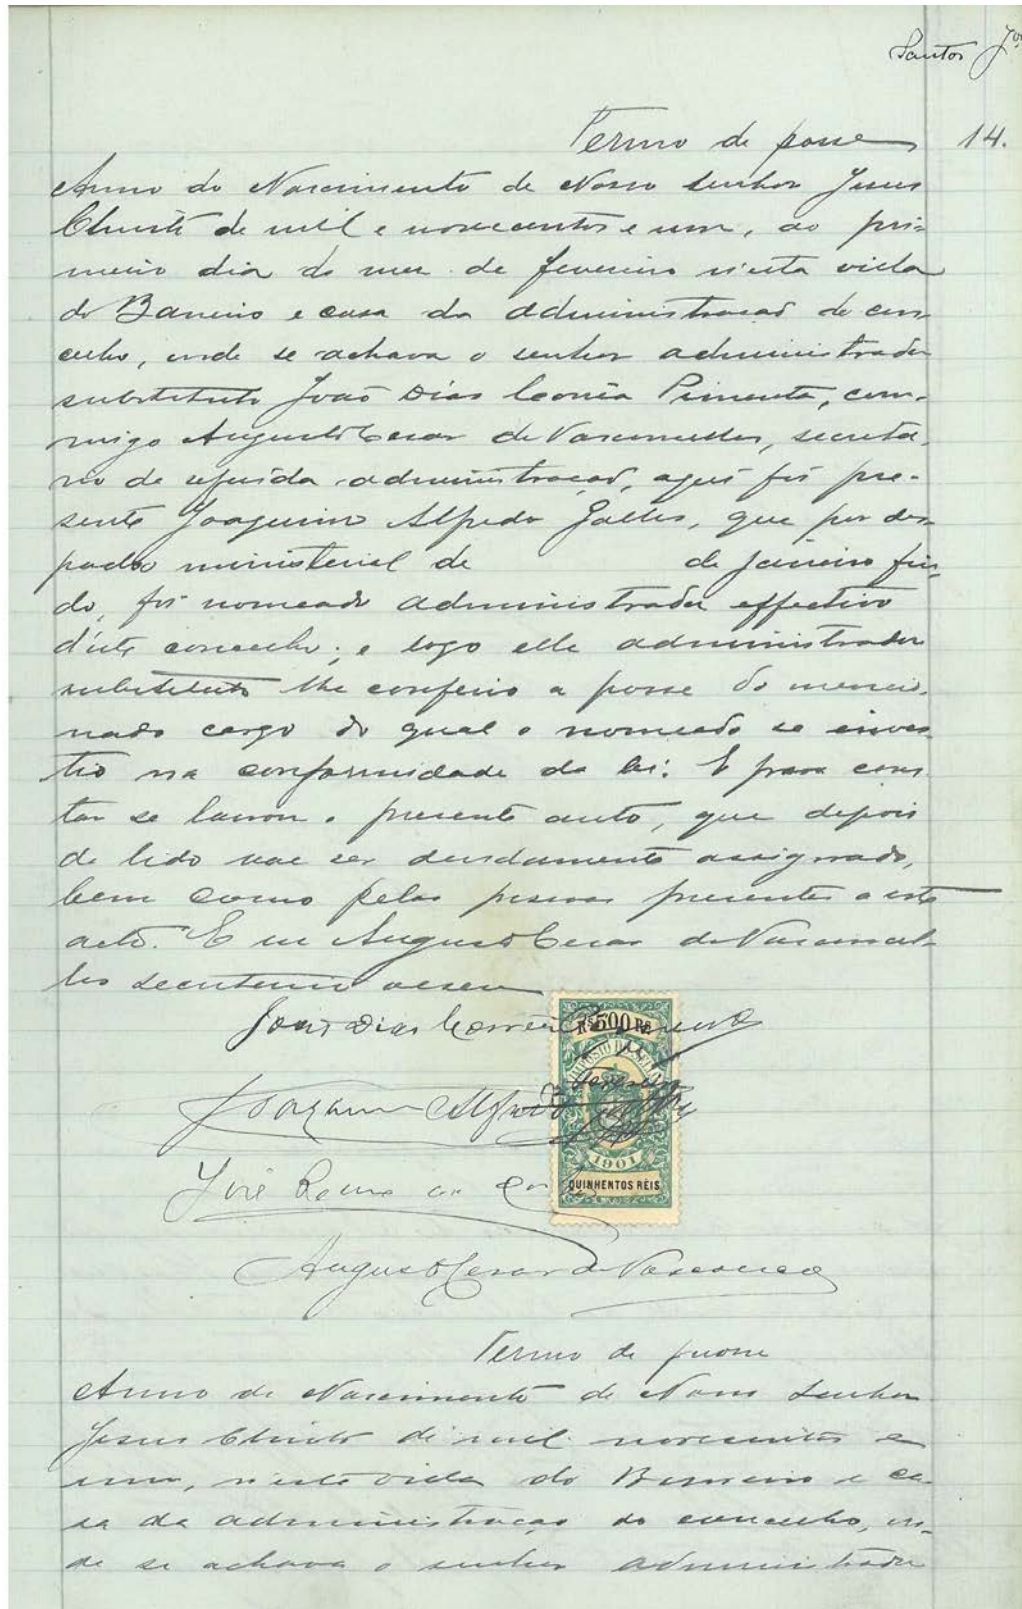 Santos Jor
Termo de posse
14.
Anno do Nascimento de Nosso Senhor Jesus
Christo de mil e novecentos e um, ao pri-
meiro dia do mez de fevereiro n'esta villa
do Barreiro e casa da administração do con-
celho, onde se achava o senhor administrador
substituto João Dias Corrêa Pimenta, com-
migo Augusto Cesar de Vasconcellos, secreta-
rio da referida administração, aqui foi pre-
sente Joaquim Alfredo Galli, que por des-
pacho ministerial de de janeiro fin-
do, foi nomeado administrador effectivo
d'este concelho; e logo elle administrador
substituto lhe conferio a posse do mencio-
nado cargo do qual o nomeado se inves-
tio na conformidade da lei. E para cons-
tar se lavrou o presente auto, que depois
de lido vae ser devidamente assignado,
bem como pelas pessoas presentes a este
acto. E eu Augusto Cesar de Vasconcel-
los secretario
João Dias Corrêa Pimenta
RS 500 RS
IMPOSTO DO SELLO
Fevereiro
Joaquim Alfredo
1901
José
QUINHENTOS RÉIS
Augusto Cesar de Vasconcellos
Termo de posse
Anno do Nascimento de Nosso Senhor
Jesus Christo de mil novecentos e
um, n'esta villa do Barreiro e ca-
sa da administração do concelho, on-
de se achava o senhor administrador